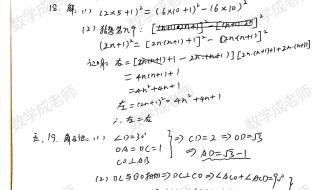 18. 解: (1) (2×5+1)²=(6×10+1)²-(6×10)²
(2)
(2n+1)²=[2n·(n+1)+1]²-[2n(n+1)]²
右=[2n(n+1)+1-2n(n+1)][2n·(n+1)+1+2n·(n+1)]
=4n(n+1)+1
=4n²+4n+1
左=(2n+1)²=4n²+4n+1
∴左=右
五、19. (1) ∠D=30°
OA=OC=1
CO⊥AB
⇒CD=2⇒OD=√3
⇒AD=√3-1
(2) DC与⊙O相切⇒OC⊥CD⇒∠ACO+∠ACD=90°
数学成老师